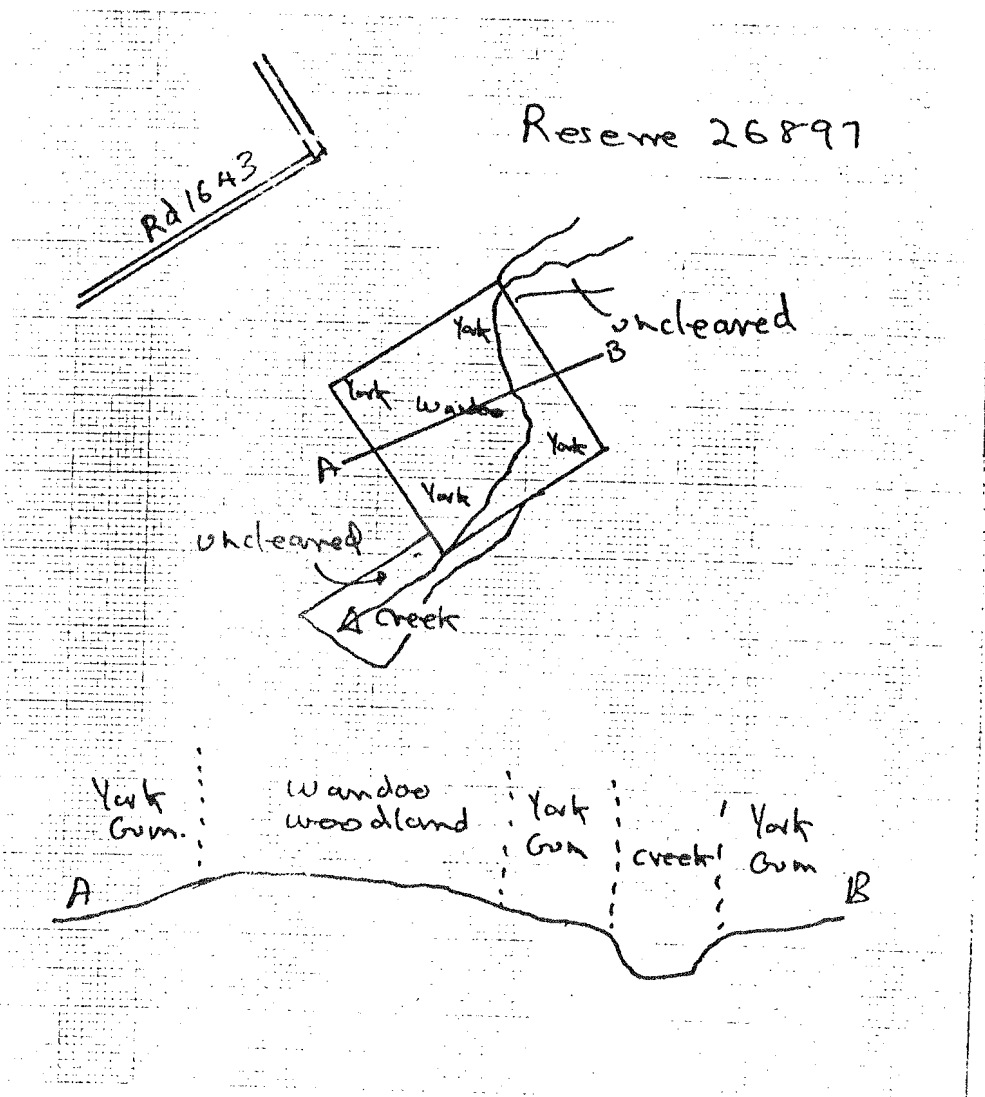 Reserve 26897
Rd 1643
uncleared
York
B
York
Wandoo
York
A
York
uncleared
Creek
York
Gum.
Wandoo
woodland
York
Gum
creek
York
Gum
A
B